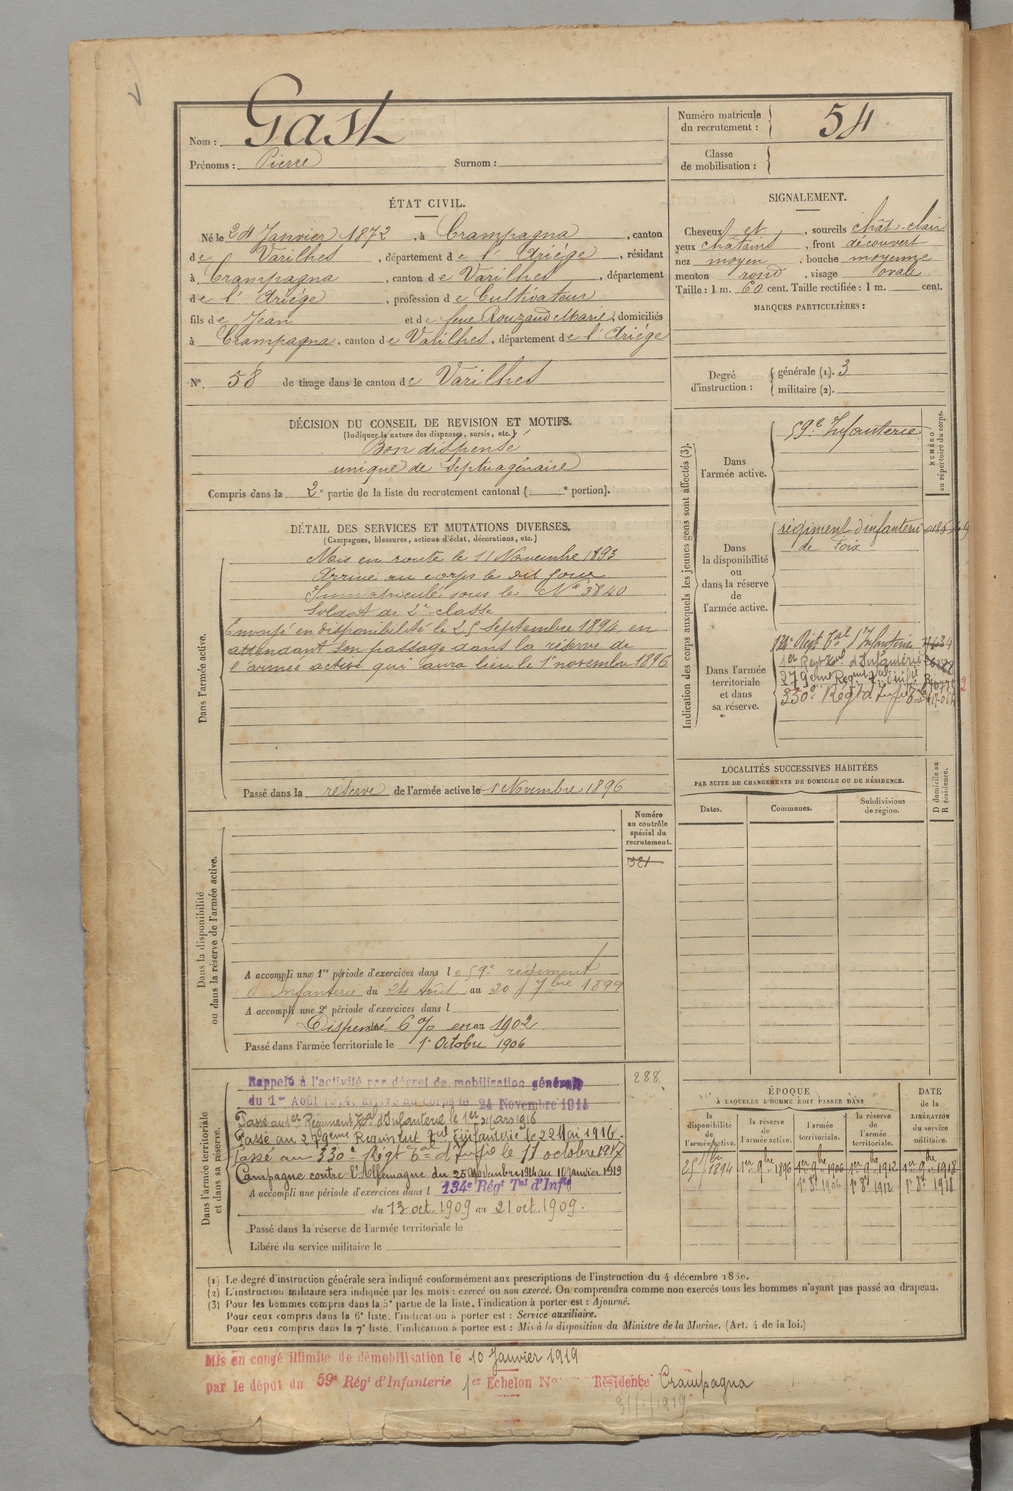 Nom : Gast
Prénoms : Pierre Surnom :
Numéro matricule du recrutement : 54
Classe de mobilisation :
ÉTAT CIVIL.
Né le 24 Janvier 1872, à Crampagna, canton
de Varilhes, département de l'Ariége, résidant
à Crampagna, canton de Varilhes, département
de l'Ariége, profession de Cultivateur
fils de Jean et de feue Rouzaud Marie, domiciliés
à Crampagna, canton de Varilhes, département de l'Ariége
N°. 58 de tirage dans le canton de Varilhes
SIGNALEMENT.
Cheveux et, sourcils chât. clair
yeux châtains, front découvert
nez moyen, bouche moyenne
menton rond, visage ovale
Taille : 1 m. 60 cent. Taille rectifiée : 1 m. cent.
MARQUES PARTICULIÈRES :
Degré d'instruction : générale (1). 3
militaire (2).
DÉCISION DU CONSEIL DE REVISION ET MOTIFS.
(Indiquer la nature des dispenses, sursis, etc.)
Bon dispensé
unique de Septuagénaire
Compris dans la 2e partie de la liste du recrutement cantonal ( e portion).
DÉTAIL DES SERVICES ET MUTATIONS DIVERSES.
(Campagnes, blessures, actions d'éclat, décorations, etc.)
Dans l'armée active.
Mis en route le 11 Novembre 1893
Arrivé au corps le dit jour
Immatriculé sous le N° 3840
Soldat de 2e classe
Envoyé en disponibilité le 25 Septembre 1894, en
attendant son passage dans la réserve de
l'armée active qui aura lieu le 1er novembre 1896
Passé dans la réserve de l'armée active le 1 Novembre 1896
Indication des corps auxquels les jeunes gens sont affectés (3).
NUMÉRO au répertoire du corps.
Dans l'armée active.
59e Infanterie
Dans la disponibilité ou dans la réserve de l'armée active.
régiment d'infanterie
de Foix
Dans l'armée territoriale et dans sa réserve.
134e Régt Tal d'Infanterie
1er Regt Tal d'Infanterie
279eme Regint d'Infie
330e Régt d'Infie
LOCALITÉS SUCCESSIVES HABITÉES
PAR SUITE DE CHANGEMENTS DE DOMICILE OU DE RÉSIDENCE.
Dates. Communes. Subdivisions de région.
D domicile ou R résidence.
Dans la disponibilité ou dans la réserve de l'armée active.
Numéro au contrôle spécial du recrutement.
321
A accompli une 1re période d'exercices dans le 59e régiment
d'Infanterie du 24 Août au 20 7bre 1899
A accompli une 2e période d'exercices dans l
Dispensé 6% en 1902
Passé dans l'armée territoriale le 1er Octobre 1906
Dans l'armée territoriale et dans sa réserve.
288.
Rappelé à l'activité par décret de mobilisation générale
du 1er Août 1914, arrivé au corps le 24 Novembre 1914
Passé au 1er Régiment Tal d'Infanterie le 1er Mars 1916
Passé au 279eme Regint d'Infanterie le 22 Mai 1916.
Passé au 330e Régt d'Infie le 11 octobre 1917
Campagne contre l'Allemagne du 25 Novembre 1914 au 10 janvier 1919
A accompli une période d'exercices dans l 134e Régt Tal d'Infie
du 13 oct. 1909 au 21 oct. 1909.
Passé dans la réserve de l'armée territoriale le
Libéré du service militaire le
ÉPOQUE
À LAQUELLE L'HOMME DOIT PASSER DANS
la disponibilité de l'armée active.
la réserve de l'armée active.
l'armée territoriale.
la réserve de l'armée territoriale.
DATE de la LIBÉRATION du service militaire.
25 7bre 1894 1er 9bre 1896 1er 9bre 1906 1er 9bre 1912 1er 9bre 1918
1er 8bre 1906 1er 8bre 1912 1er 8bre 1918
(1) Le degré d'instruction générale sera indiqué conformément aux prescriptions de l'instruction du 4 décembre 1889.
(2) L'instruction militaire sera indiquée par les mots : exercé ou non exercé. On comprendra comme non exercés tous les hommes n'ayant pas passé au drapeau.
(3) Pour les hommes compris dans la 5e partie de la liste, l'indication à porter est : Ajourné.
Pour ceux compris dans la 6e liste, l'indication à porter est : Service auxiliaire.
Pour ceux compris dans la 7e liste, l'indication à porter est : Mis à la disposition du Ministre de la Marine. (Art. 4 de la loi.)
Mis en congé illimité de démobilisation le 10 Janvier 1919
par le dépot du 59e Régt d'Infanterie 1er Echelon N° Résidence Crampagna